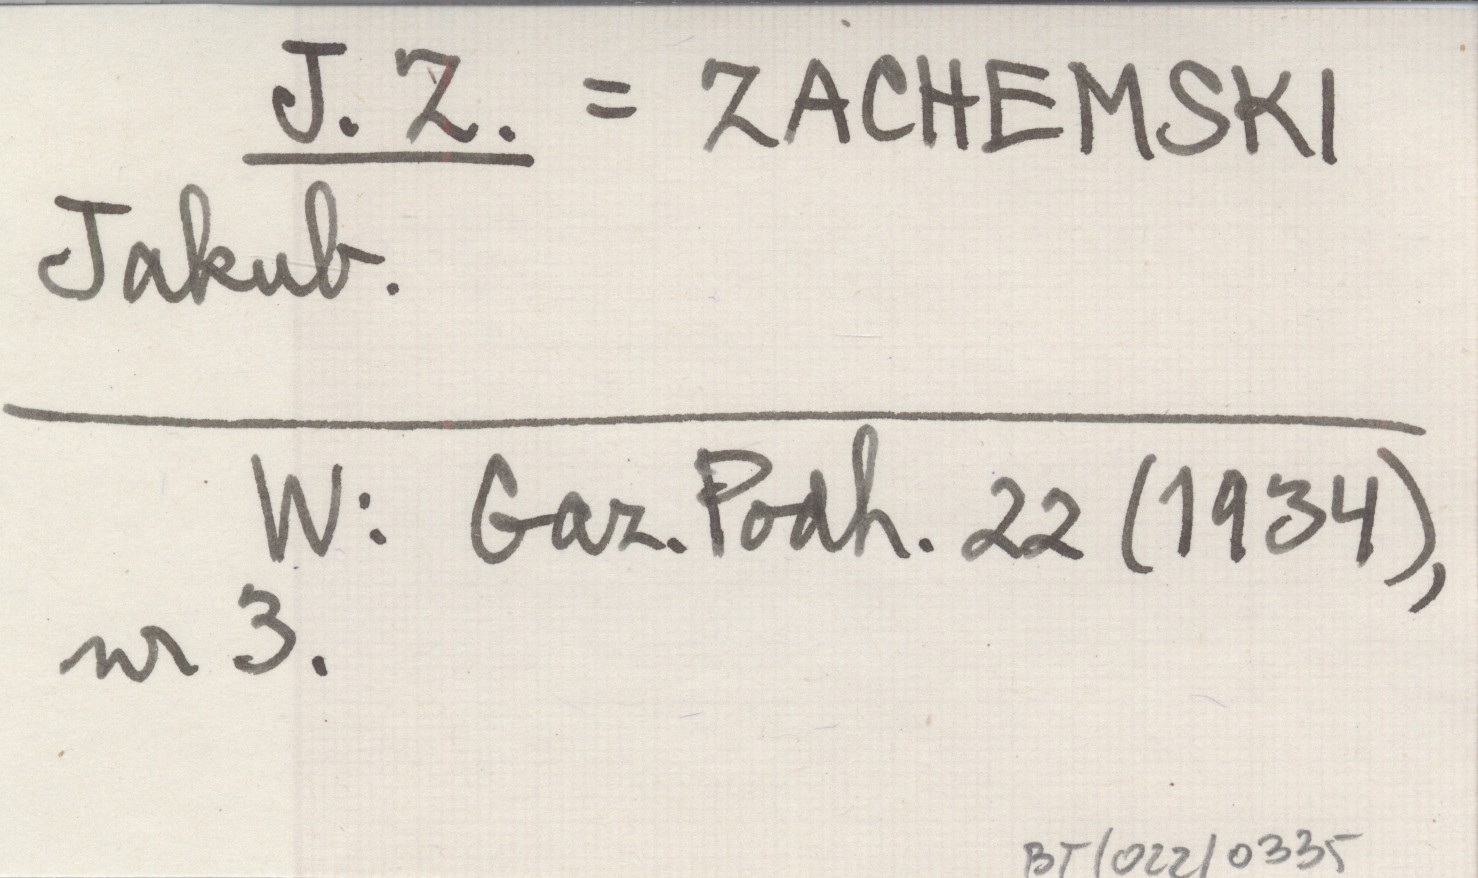 J. Z. = ZACHEMSKI
Jakub.
W: Gaz. Podh. 22 (1934),
nr 3.
BT/022/0335